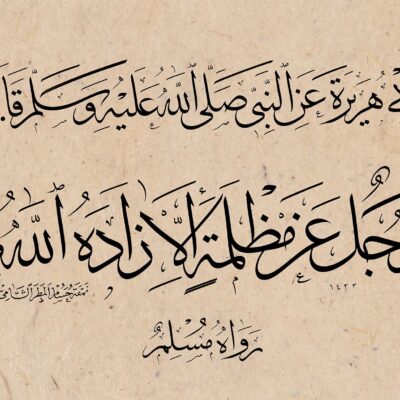 هُرَيرَةَ عَنِ النَّبِيِّ صَلَّى اللهُ عَلَيْهِ وَسَلَّمَ قَا
جُل عَن مَظلَمَةٍ إِلَّا زَادَهُ اللهُ
١٤٢٣
رَوَاهُ مُسْلِم